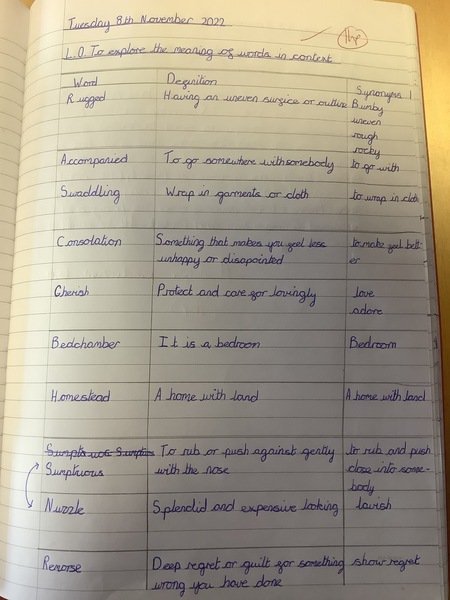 Tuesday 8th November 2022
1hp
L.O. To explore the meaning of words in context
Word Definition Synonyms
Rugged Having an uneven surface or outline Bumby
uneven
rough
rocky
Accompanied To go somewhere with somebody to go with
Swaddling Wrap in garments or cloth to wrap in cloth
Consolation Something that makes you feel less to make feel bett-
unhappy or disapointed er
Cherish Protect and care for lovingly love
adore
Bedchamber It is a bedroom Bedroom
Homestead A home with land A home with land
To rub or push against gently to rub and push
Sumptuous with the nose close into some-
body
Nuzzle Splendid and expensive looking lavish
Remorse Deep regret or guilt for something show regret
wrong you have done